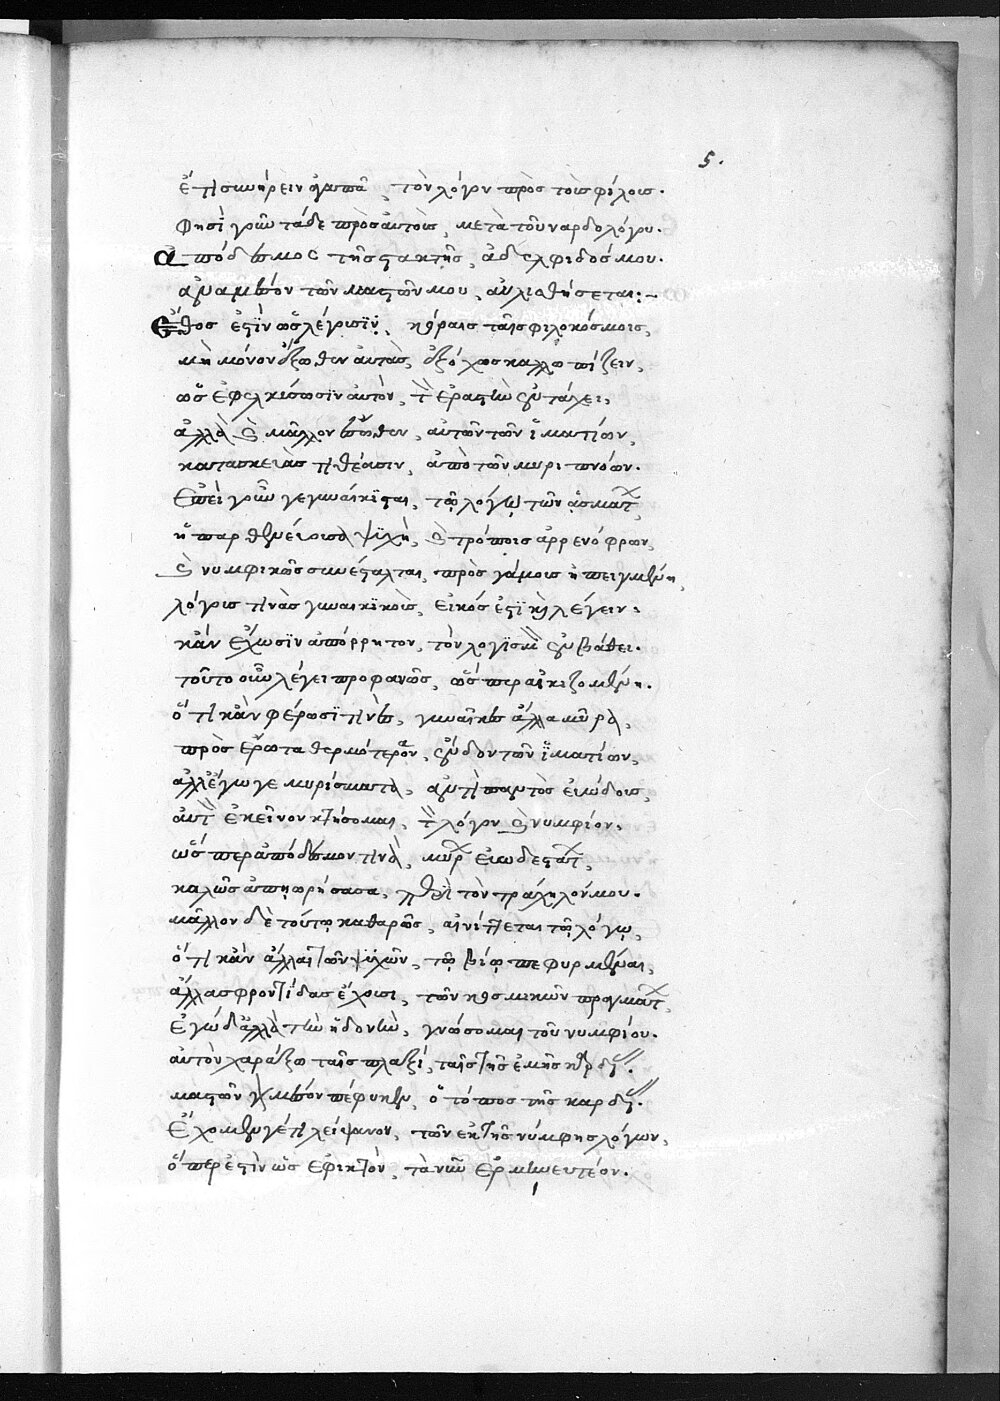 5.
ἔτι συνείρειν ἀγαπᾶ, τὸν λόγον πρὸς τοῖς φίλοις.
φησὶ γοῦν τάδε πρὸς αὐτοὺς, μετὰ τοῦ νάρδου λόγου.
Ἀπόδεσμος τῆς στακτῆς, ἀδελφιδός μου.
ἀναμέσον τῶν μαστῶν μου, αὐλισθήσεται:~
Ἔθος ἐστὶν ὡς λέγουσιν, κόραις ταῖς φιλοκόσμοις,
μὴ μόνον ἔξωθεν αὐτὰς, ἐξόχως καλλωπίζειν,
ὡς ἐφελκύσωσιν αὐτὸν, τὸν ἐραστὴν ἐν τάχει,
ἀλλὰ καὶ μᾶλλον ἔσωθεν, αὐτῶν τῶν ἱματίων,
κατασκευὰς τιθέασιν, ἀπὸ τῶν μυριπνόων.
Ἐπεὶ γοῦν γεγυναίκισται, τῷ λόγῳ τῶν ᾀσμάτων,
ἡ παρθενεύουσα ψυχὴ, καὶ τρόποις ἀρρενόφρων,
καὶ νυμφικῶς συνέσταλται, πρὸς γάμοις ἠπειγμένη,
λόγους τινὰς γυναικικοὺς, εἰκός ἐστι καὶ λέγειν.
κἂν ἔχωσιν ἀπόρρητον, τὸν λογισμὸν ἐν βάθει.
τοῦτο οὖν λέγει προφανῶς, ὥσπερ αἰκιζομένη.
ὅτι κἂν φέρωσί τινες, γυναῖκες ἄλλα μῦρα,
πρὸς ἔρωτα θερμότερον, ἔνδον τῶν ἱματίων,
ἀλλ' ἔγωγε μυρίσματα, ἀντὶ παντὸς εὐώδους,
αὐτὸν ἐκεῖνον κτήσομαι, τὸν λόγον καὶ νυμφίον.
ὥσπερ ἀπόδεσμον τινὰ, μύρων εὐωδεστάτων,
καλῶς ἀπῃωρήσασα, περὶ τὸν τράχηλόν μου.
μᾶλλον δὲ τούτῳ καθαρῶς, αἰνίττεται τῷ λόγῳ,
ὅτι κἂν ἄλλαι τῶν ψυχῶν, τῷ βίῳ πεφυρμέναι,
ἄλλας φροντίδας ἔχουσι, τῶν κοσμικῶν πραγμάτων,
ἐγὼ δ' ἀλλὰ τὴν ἡδονὴν, γνώσομαι τοῦ νυμφίου.
αὐτὸν χαράξω ταῖς πλαξί, ταῖς τῆς ἐμῆς καρδίας.
μαστῶν γὰρ μέσον πέφυκεν, ὁ τόπος τῆς καρδίας.
Ἐχομεν γέ τι λείψανον, τῶν ἐκ τῆς νύμφης λόγων,
ὅπερ ἐστὶν ὡς ἐφικτὸν, τὰ νῦν ἑρμηνευτέον.